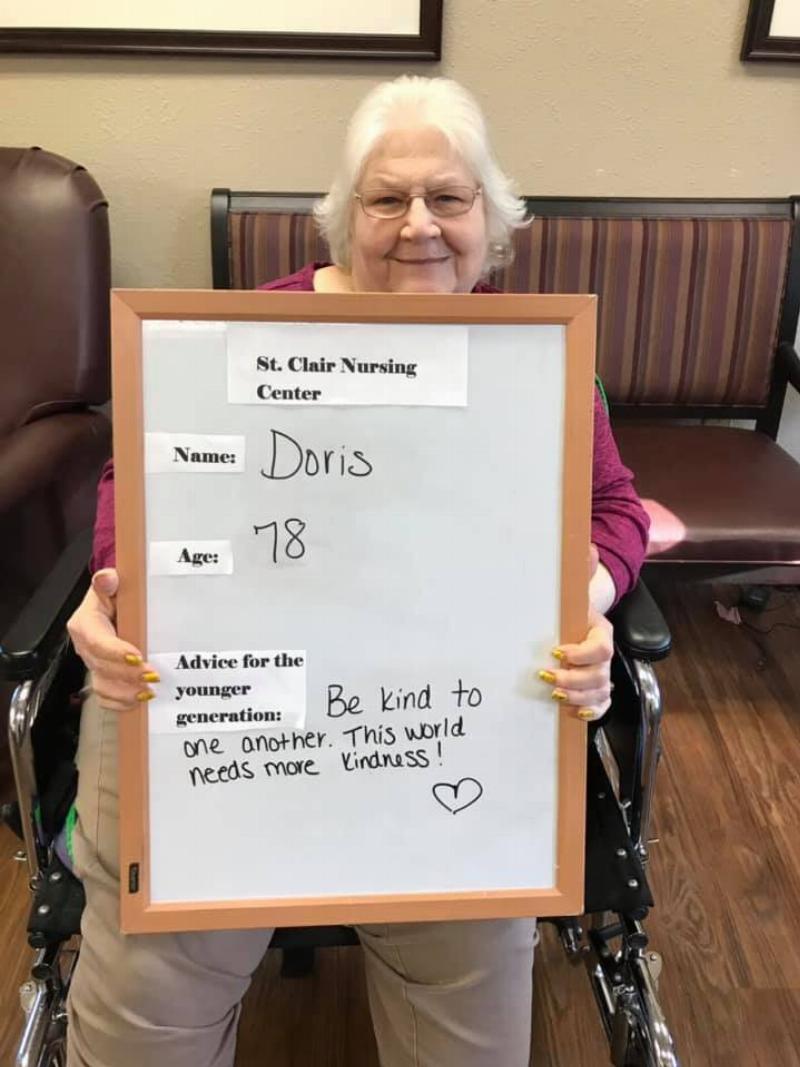 St. Clair Nursing
Center
Name: Doris
Age: 78
Advice for the
younger
generation: Be kind to
one another. This world
needs more kindness!